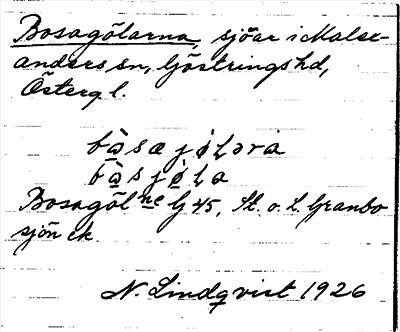 Bosagölarna, sjöar i Malex-
anders sn, Göstrings hd,
Österg l.
bòsa jølȧra
bòsjøla
Bosagöl ne G 45, St. o. L. Granbo
sjön ek.
N. Lindqvist 1926